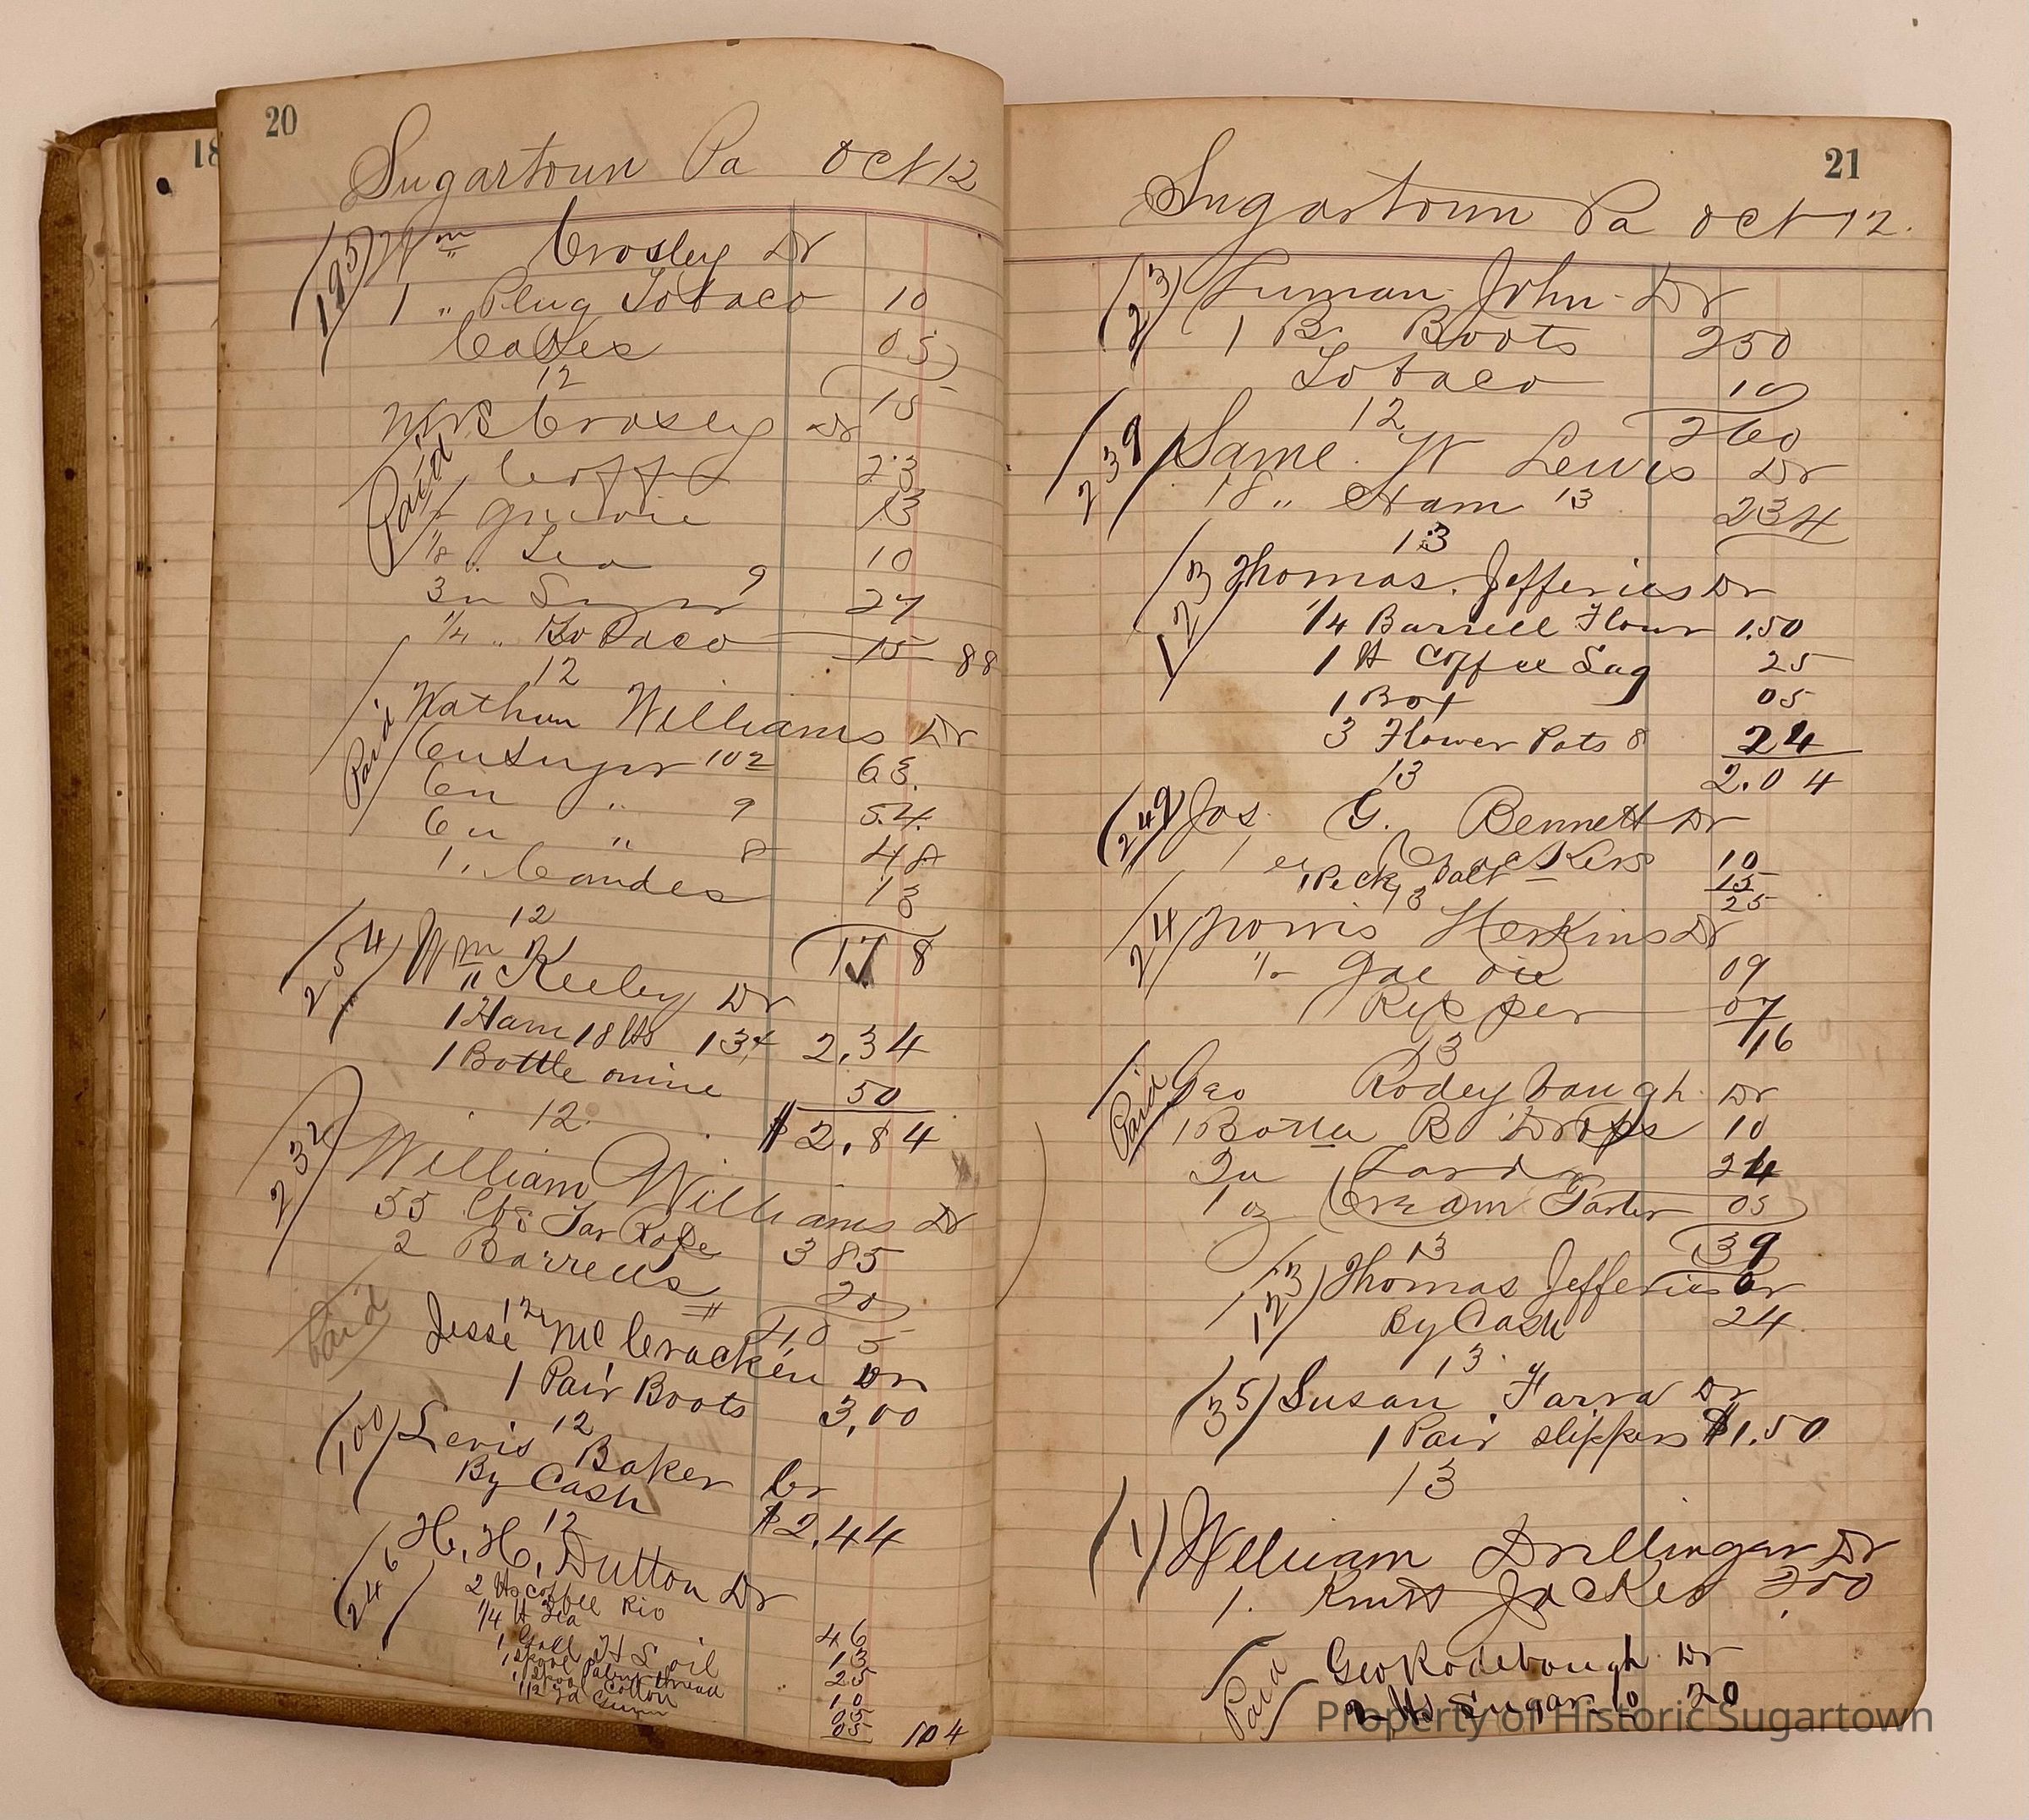 18
20
Sugartown Pa Oct 12
195 Wm Crosley Dr
1 " Plug Tobaco 10
Cakes 05
12 15
Mrs Crosley Dr
Paid
Coffee 23
13
1/8 " Tea 10
3 " Sugar 9 27
1/4 " Tobaco 15 88
12
Paid Nathan Williams Dr
6 " Sugar 10 1/2 63
6 " " 9 54
6 " " 8 48
1 " Candes 13
12 178
254 Wm Keeley Dr
1 Ham 18 lbs 13 2,34
1 Bottle 50
12 $2,84
232 William Williams Dr
55 lbs Tar Rope 385
2 Barrells 20
12 405
Paid Jesse McCracken Dr
1 Pair Boots 3,00
12
100 Levis Baker Cr
By Cash $2,44
12
246 H. H. Dutton Dr
2 lbs coffee Rio 46
1/4 lb Tea 13
1 Gall H S oil 25
1 Spool Patent thread 10
1 Spool Cotton 05
1/2 yd 05 104
21
Sugartown Pa Oct 12.
23 Furman John Dr
1 Pr Boots 250
Tobaco 10
12 260
239 Same W Lewis Dr
18 " Ham 13 234
13
123 Thomas Jefferies Dr
1/4 Barrell Flour 1.50
1 lb Coffee Sug 25
1 Box 05
3 Flower Pots 8 24
13 2.04
249 Jos. G. Bennett Dr
1 Crackers 10
1 Peck Salt 15
13 25
24 Norris Herkins Dr
1/2 gal oil 09
Pepper 07
13 16
Paid Geo Rodeybaugh Dr
1 Bottle B Drops 10
2 " Lard 24
1 oz Cream Tarter 05
13 39
123 Thomas Jefferies Cr
By Cash 24
13
35 Susan Farra Dr
1 Pair slippers $1.50
13
1 William Drillinger Dr
1. Knitt Jacket 2.00
Paid Geo Rodebough Dr
2 lbs Sugar 10 20
Property of Historic Sugartown